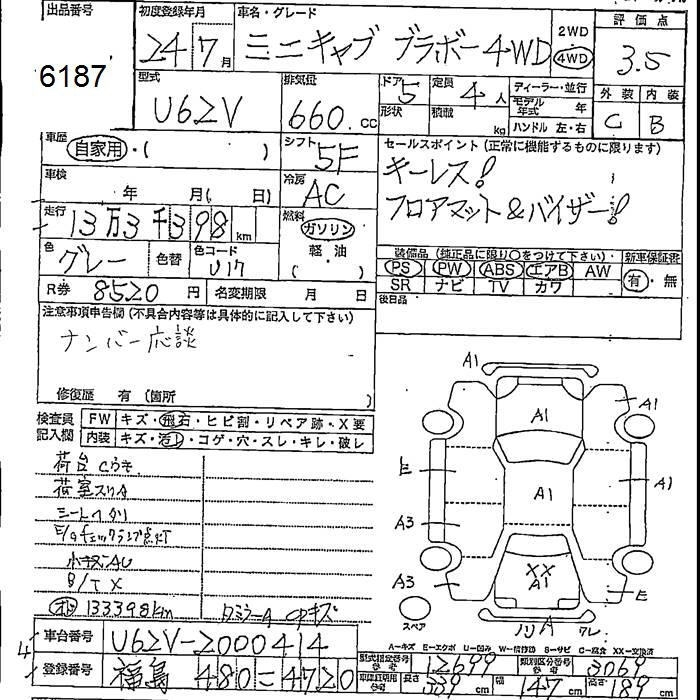 出品番号 初度登録年月 車名・グレード 評価点
6187 24 7月 ミニキャブ ブラボー 4WD 2WD 4WD 3.5
型式 排気量 ドア 定員 ディーラー・並行 外装 内装
U62V 660.cc 5 4人 モデル年式 年 C B
形状 積載 kg ハンドル 左・右
車歴 シフト セールスポイント(正常に機能するものに限ります)
自家用・( ) 5F キーレス!
車検 年 月( 日) 冷房 AC フロアマット&バイザー!
走行 13万3千398km 燃料 ガソリン
色 グレー 色替 色コード U17 軽・油 ( )
装備品(純正品に限り○をつけて下さい) 新車保証書
PS PW ABS エアB AW 有・無
SR ナビ TV カワ
R券 8520円 名変期限 月 日 後日品
注意事項申告欄(不具合内容等は具体的に記入して下さい)
ナンバー応談
修復歴 有 (箇所 )
検査員記入欄 FW キズ・飛石・ヒビ割・リペア跡・X要
内装 キズ・汚れ・コゲ・穴・スレ・キレ・破レ
荷台Cうき
荷室スリA
シートヘタリ
E/gチェックランプ点灯
小キズAU
B/T X
133398km
A1
A1 A1
E A1 A1
A3
A3 XX A1 E
スペア A
A=キズ E=エクボ U=凹み W=補修跡 S=サビ C=腐食 XX=交換済
4 車台番号 U62V-200044 型式指定番号 参考 12699 類別区分番号 参考 3069
登録番号 福島 480 = 4720 車庫証明用 参考 長さ 339cm 幅 147cm 高さ 189cm